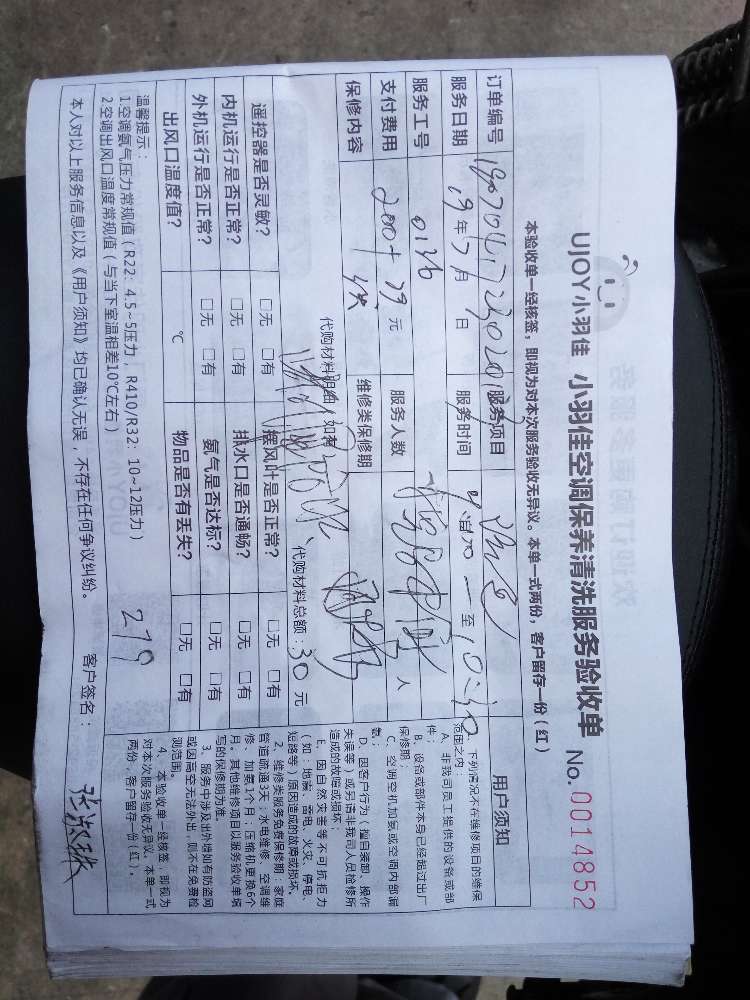 UJOY小羽佳 小羽佳空调保养清洗服务验收单 No. 0014852
本验收单一经核签，即视为对本次服务验收无异议。本单一式两份，客户留存一份（红）
订单编号 服务项目
服务日期 19年7月 日 服务时间 至
服务工号 0136 服务人数 人
支付费用 200+79 元
保修内容 维修类保修期
代购材料明细（如有
代购材料总额：30 元
遥控器是否灵敏？ □无 □有 摆风叶是否正常？ □无 □有
内机运行是否正常？ □无 □有 排水口是否通畅？ □无 □有
外机运行是否正常？ □无 □有 氨气是否达标？ □无 □有
出风口温度值？ ℃ 物品是否有丢失？ □无 □有
温馨提示：
1空调氨气压力常规值（R22：4.5~5压力，R410/R32：10~12压力）
2空调出风口温度常规值（与当下室温相差10℃左右） 279
本人对以上服务信息以及《用户须知》均已确认无误，不存在任何争议纠纷。 客户签名：
用户须知
1、下列情况不在维修项目的维保
范围之内：
A、非我司员工提供的设备或部
件；
B、设备或部件本身已经超过出厂
保修期；
C、空调空机加氨或空调内部漏
氨；
D、因客户行为（擅自装卸、操作
失误等）或另请非我司人员检修所
造成的故障或损坏
E、因自然灾害等不可抗拒力
（如：地震、雷电、火灾、停电、
短路等）原因造成的故障或损坏。
2、维修类服务免费保修期：家庭
管道疏通3天；水电维修、空调维
修、加氨1个月；压缩机更换6个
月。其他维修项目以服务验收单填
写的保修期为准。
3、服务中涉及出外墙如有防盗网
或因高空无法外出，则不在免费检
测范围。
4、本验收单一经核签，即视为
对本次服务验收无异议。本单一式
两份，客户留存一份（红）。